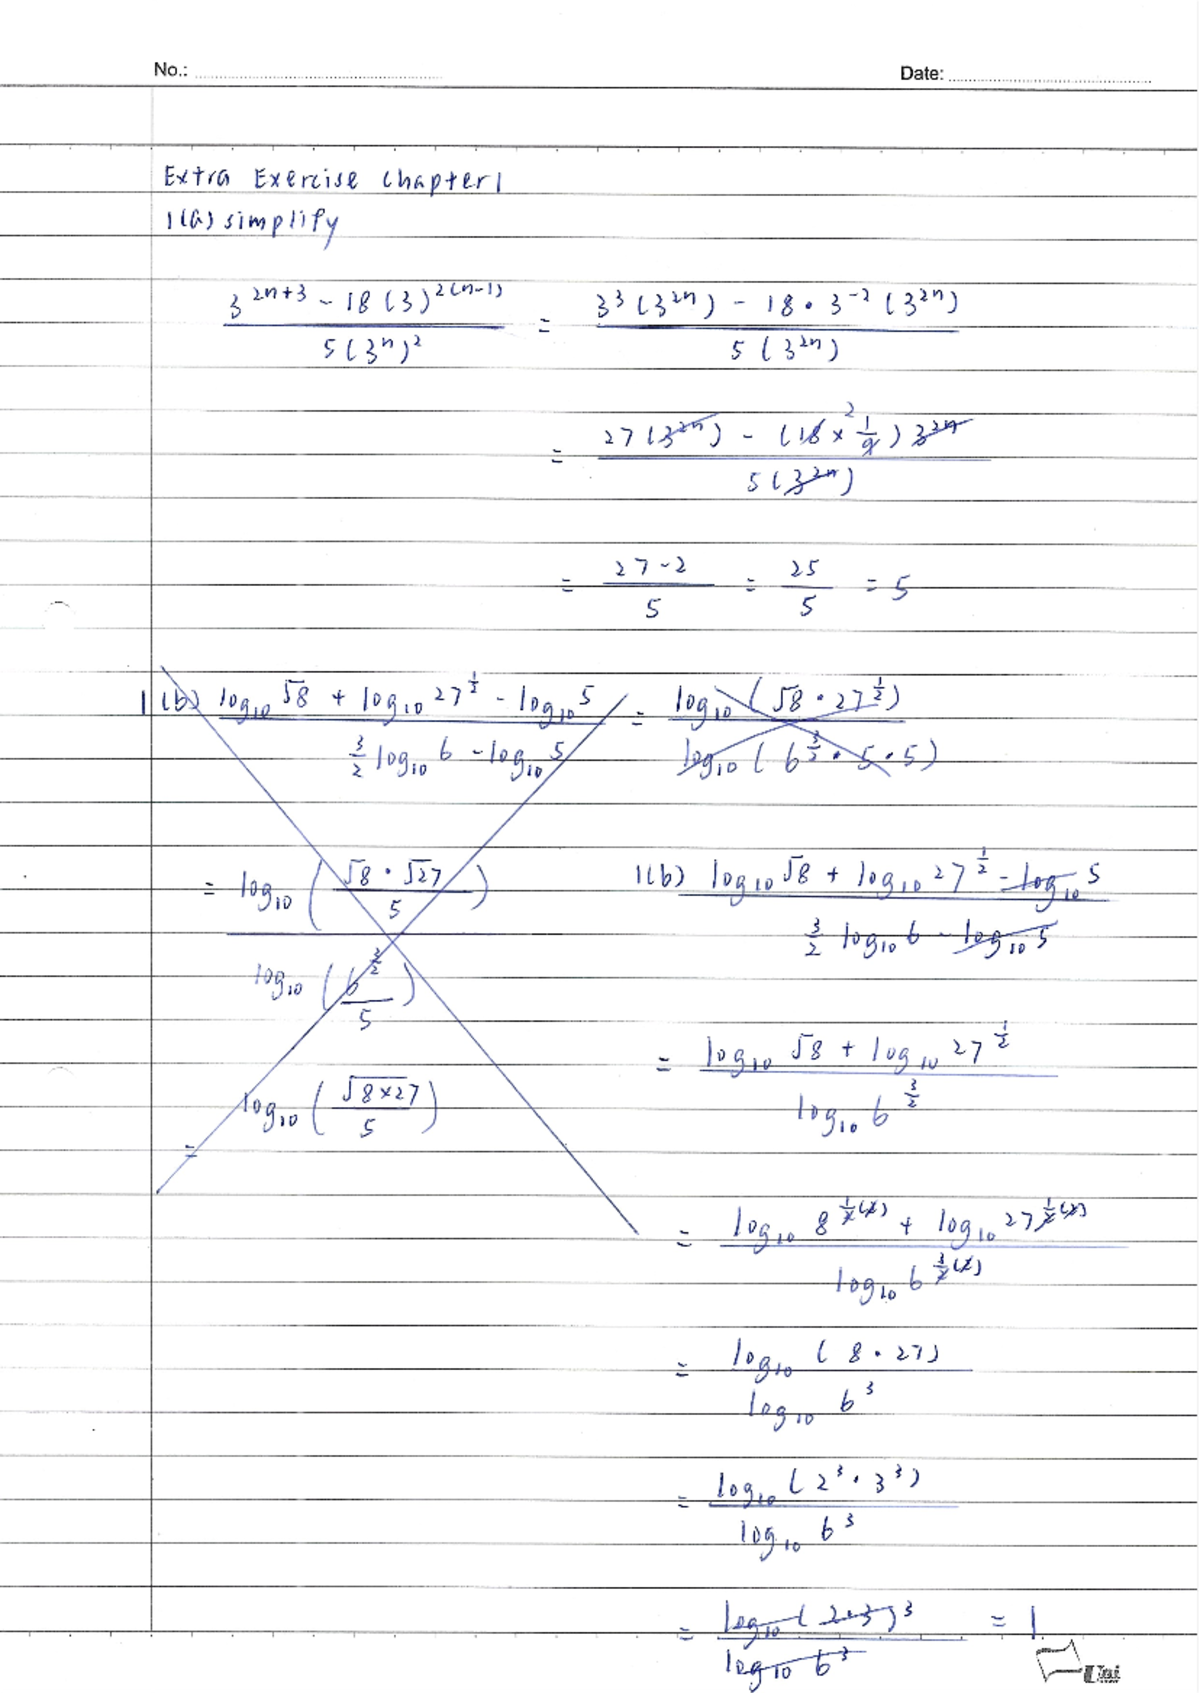 No.: Date:
Extra Exercise Chapter 1
1(a) simplify
\frac{3^{2n+3} - 18(3)^{2(n-1)}}{5(3^n)^2} = \frac{3^3(3^{2n}) - 18 \cdot 3^{-2}(3^{2n})}{5(3^{2n})}
= \frac{27(3^{2n}) - (18 \times \frac{1}{9}) 3^{2n}}{5(3^{2n})} 2
= \frac{27-2}{5} = \frac{25}{5} = 5
1(b) \frac{log_{10} √8 + log_{10} 27^{\frac{1}{2}} - log_{10} 5}{\frac{3}{2} log_{10} 6 - log_{10} 5} = \frac{log_{10} (√8 \cdot 27^{\frac{1}{2}})}{log_{10} (6^{\frac{3}{2}} \cdot 5 \cdot 5)}
= \frac{log_{10} (\frac{√8 \cdot √27}{5})}{log_{10} (\frac{6^{\frac{3}{2}}}{5})}
= log_{10} (\frac{√{8×27}}{5})
1(b) \frac{log_{10} √8 + log_{10} 27^{\frac{1}{2}} - log_{10} 5}{\frac{3}{2} log_{10} 6 - log_{10} 5}
= \frac{log_{10} √8 + log_{10} 27^{\frac{1}{2}}}{log_{10} 6^{\frac{3}{2}}}
= \frac{log_{10} 8^{\frac{1}{2}(2)} + log_{10} 27^{\frac{1}{2}(2)}}{log_{10} 6^{\frac{3}{2}(2)}}
= \frac{log_{10} (8 \cdot 27)}{log_{10} 6^3}
= \frac{log_{10} (2^3 \cdot 3^3)}{log_{10} 6^3}
= \frac{log_{10} (2 \cdot 3)^3}{log_{10} 6^3} = 1